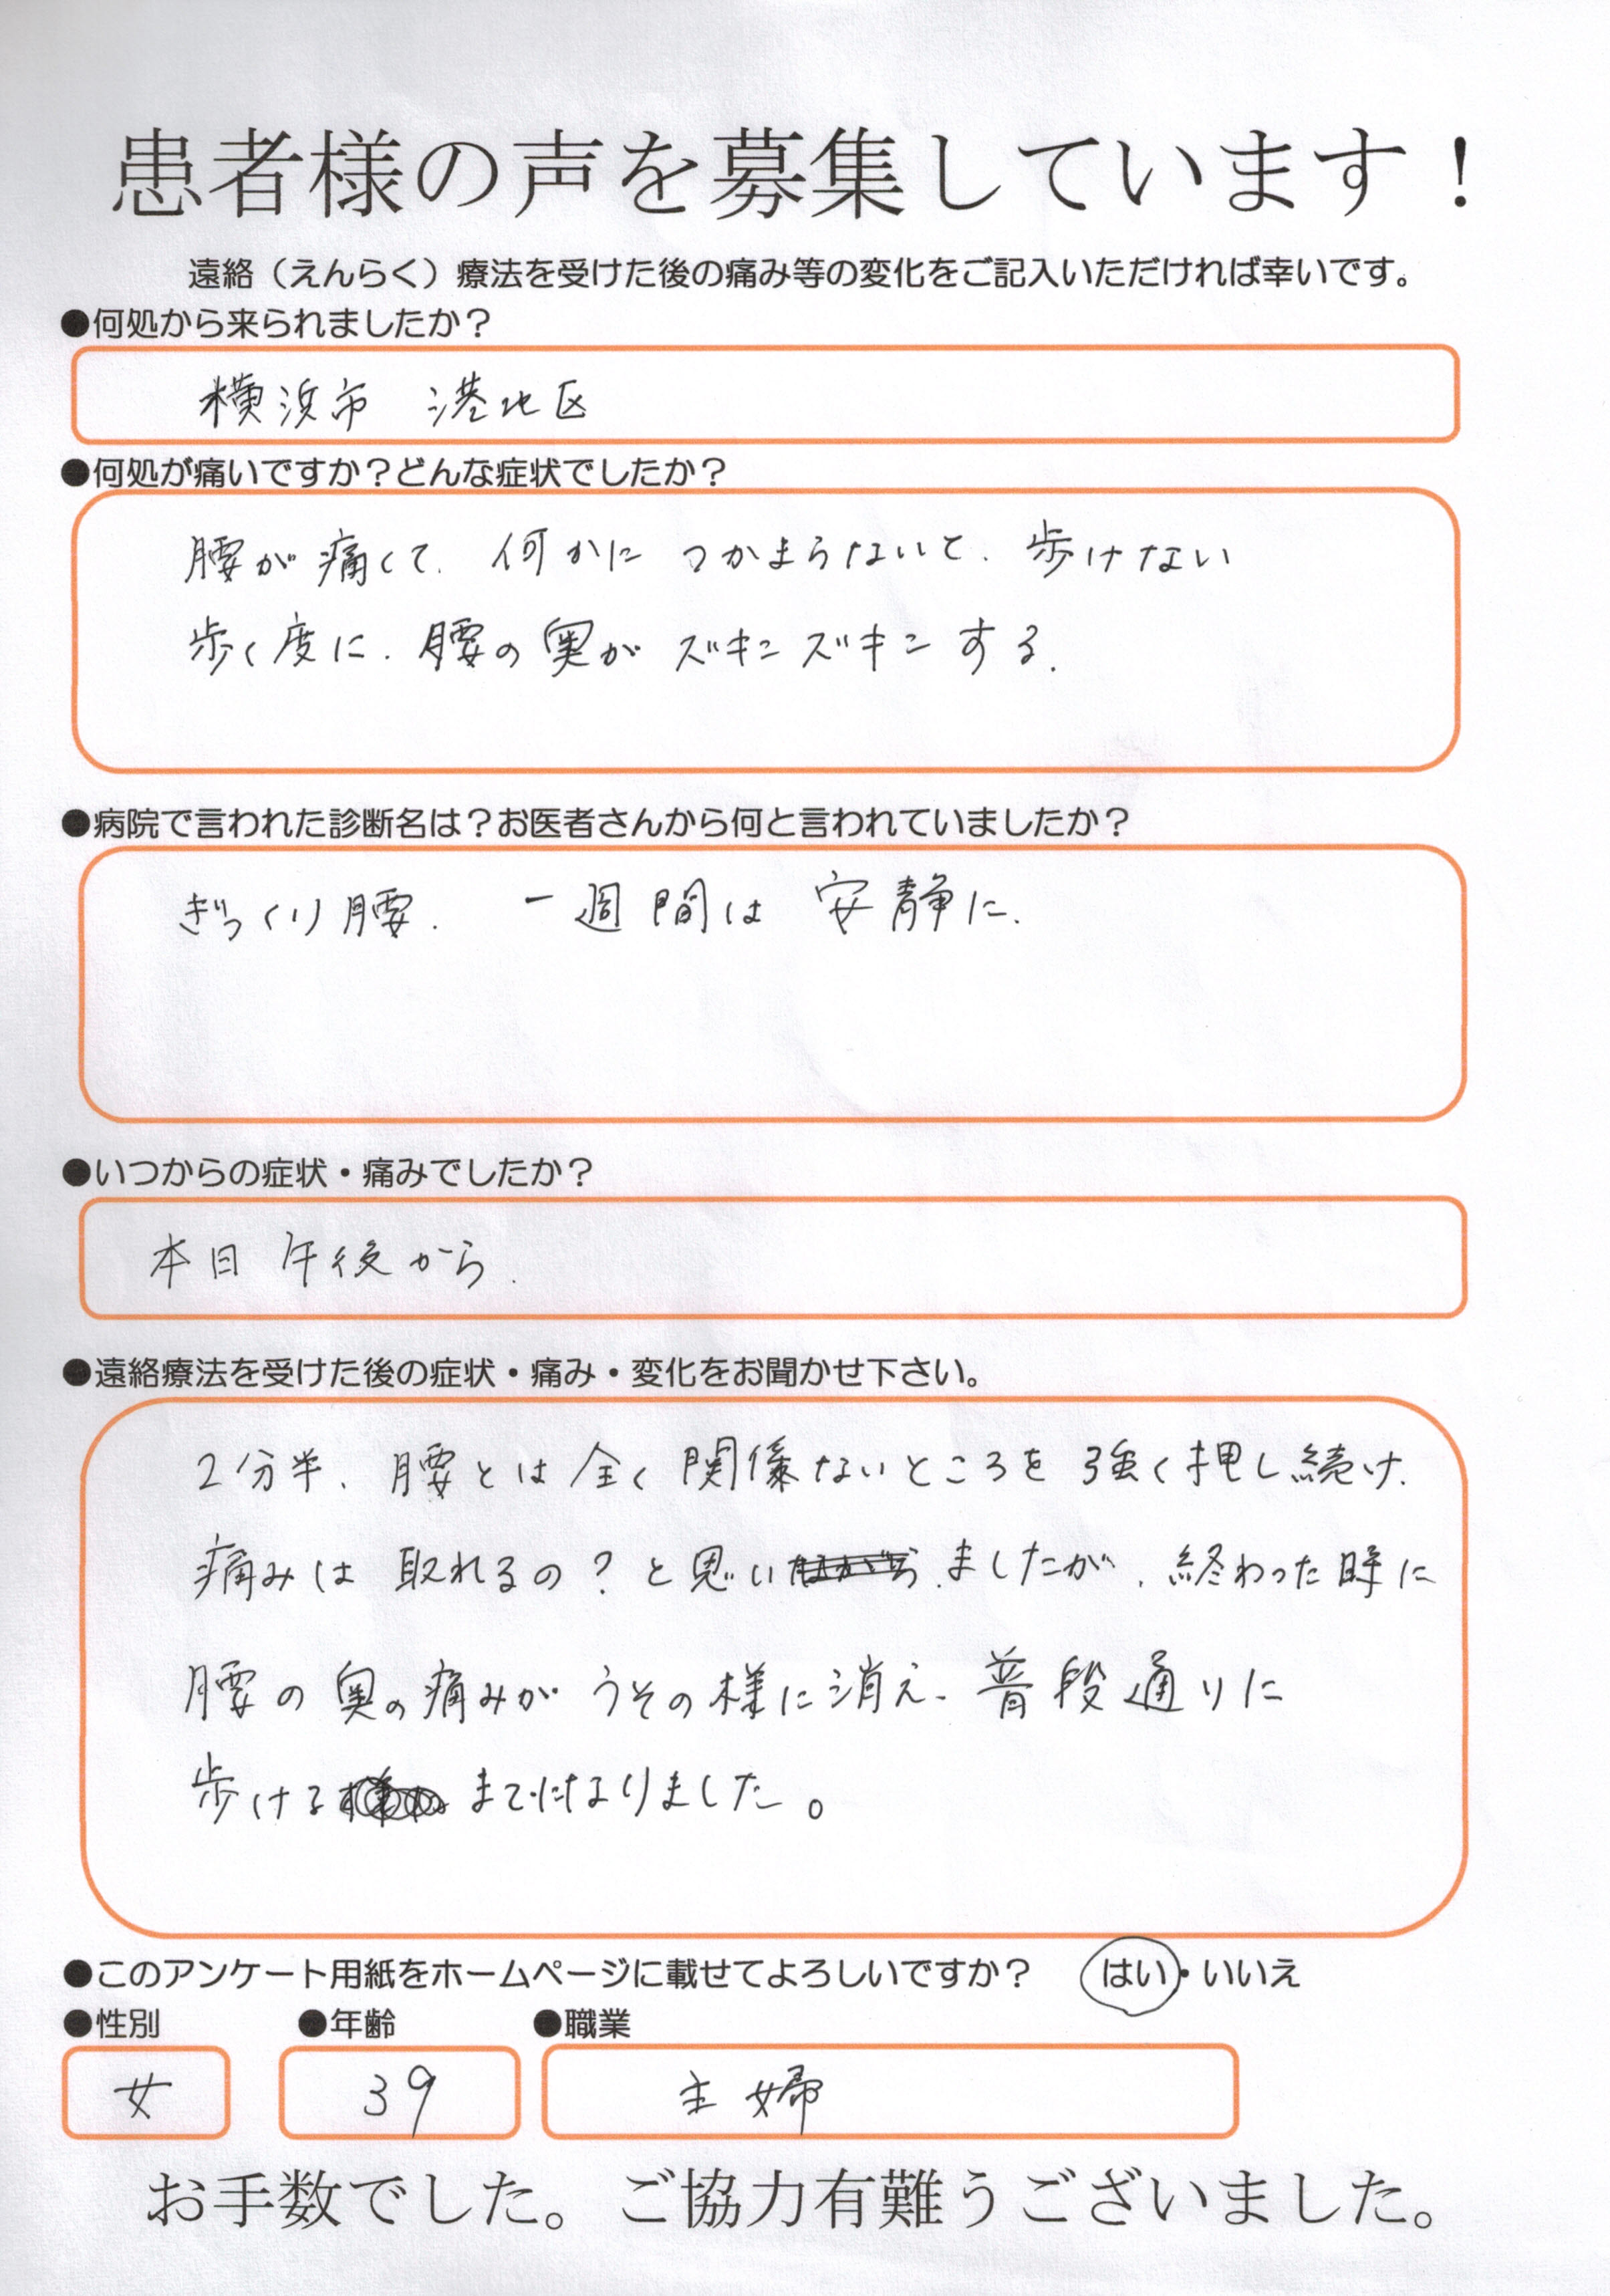 患者様の声を募集しています！
遠絡（えんらく）療法を受けた後の痛み等の変化をご記入いただければ幸いです。
●何処から来られましたか？
横浜市 港北区
●何処が痛いですか？どんな症状でしたか？
腰が痛くて、何かにつかまらないと、歩けない
歩く度に、腰の奥がズキンズキンする。
●病院で言われた診断名は？お医者さんから何と言われていましたか？
ぎっくり腰． 一週間は 安静に．
●いつからの症状・痛みでしたか？
本日 午後から．
●遠絡療法を受けた後の症状・痛み・変化をお聞かせ下さい。
2分半、腰とは全く関係ないところを強く押し続け、
痛みは取れるの？と思いましたが、終わった時に
腰の奥の痛みがうその様に消え、普段通りに
歩けるまでになりました。
●このアンケート用紙をホームページに載せてよろしいですか？ はい・いいえ
●性別 ●年齢 ●職業
女 39 主婦
お手数でした。ご協力有難うございました。